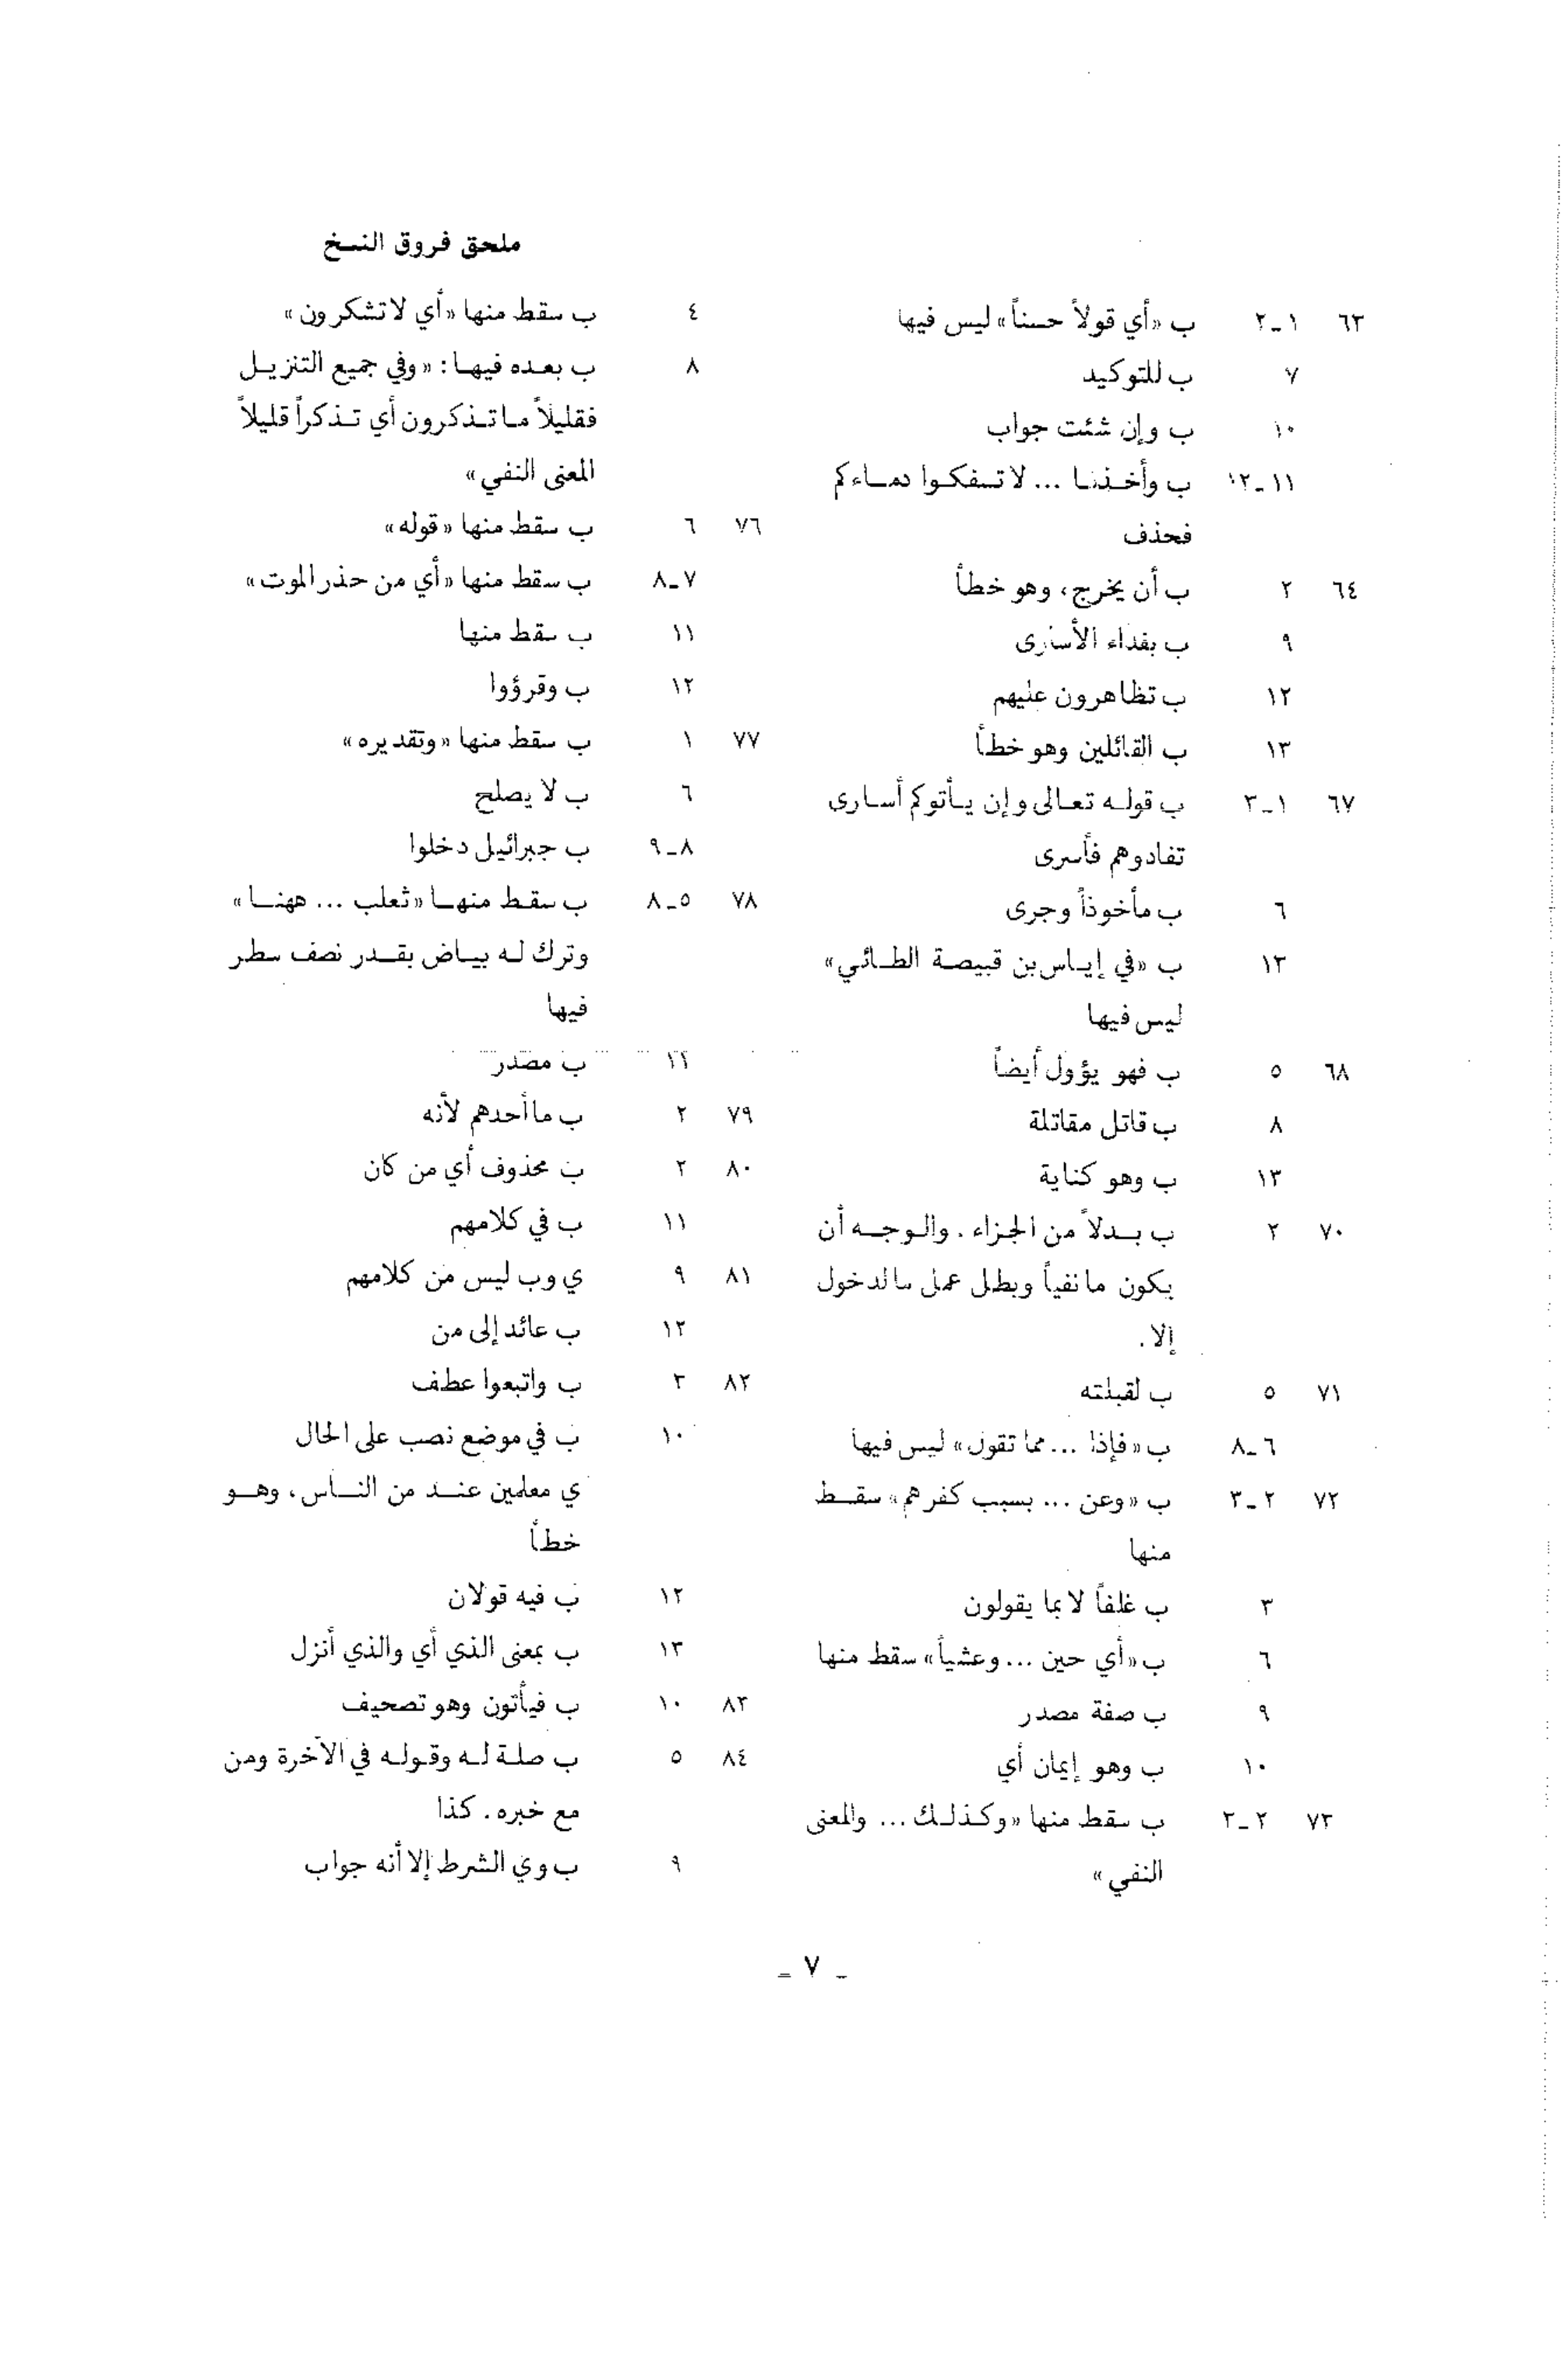 ملحق فروق النسخ
٦٣ ١-٢ ب «أي قولاً حسناً» ليس فيها
٧ ب للتوكيد
١٠ ب وإن شئت جواب
١١-١٢ ب وأخذنا ... لا تسفكوا دماءكم
فحذف
٦٤ ٢ ب أن يخرج، وهو خطأ
٩ ب بفداء الأسارى
١٢ ب تظاهرون عليهم
١٣ ب القائلين وهو خطأ
٦٧ ١-٣ ب قوله تعالى وإن يأتوكم أسارى
تفادوهم فأسرى
٦ ب مأخوذاً وجرى
١٣ ب «في إياس بن قبيصة الطائي»
ليس فيها
٦٨ ٥ ب فهو يؤول أيضاً
٨ ب قاتل مقاتلة
١٣ ب وهو كناية
٧٠ ٢ ب بدلاً من الجزاء . والوجه أن
يكون ما نفياً وبطل عمل ما لدخول
إلا .
٧١ ٥ ب لقبلته
٦-٨ ب «فإذا ... مما تقول» ليس فيها
٧٢ ٢-٣ ب «وعن ... بسبب كفرهم» سقط
منها
٣ ب غلفاً لا بما يقولون
٦ ب «أي حين ... وعشياً» سقط منها
٩ ب صفة مصدر
١٠ ب وهو إيمان أي
٧٣ ٢-٣ ب سقط منها «وكذلك ... والمعنى
النفي»
٤ ب سقط منها «أي لا تشكرون»
٨ ب بعده فيها : «وفي جميع التنزيل
فقليلاً ما تذكرون أي تذكراً قليلاً
المعنى النفي»
٧٦ ٦ ب سقط منها «قوله»
٧-٨ ب سقط منها «أي من حذر الموت»
١١ ب سقط منها
١٢ ب وقرؤوا
٧٧ ١ ب سقط منها «وتقديره»
٦ ب لا يصلح
٨-٩ ب جبرائيل دخلوا
٧٨ ٥-٨ ب سقط منها «ثعلب ... ههنا»
وترك له بياض بقدر نصف سطر
فيها
١١ ب مصدر
٧٩ ٢ ب ما أحدهم لأنه
٨٠ ٢ ب محذوف أي من كان
١١ ب في كلامهم
٨١ ٩ ي وب ليس من كلامهم
١٢ ب عائد إلى من
٨٢ ٣ ب واتبعوا عطف
١٠ ب في موضع نصب على الحال
ي معلمين عند من الناس، وهو
خطأ
١٢ ب فيه قولان
١٣ ب بمعنى الذي أي والذي أنزل
٨٣ ١٠ ب فيأتون وهو تصحيف
٨٤ ٥ ب صلة له وقوله في الآخرة ومن
مع خبره . كذا
٩ ب وي الشرط إلا أنه جواب
- ٧ -